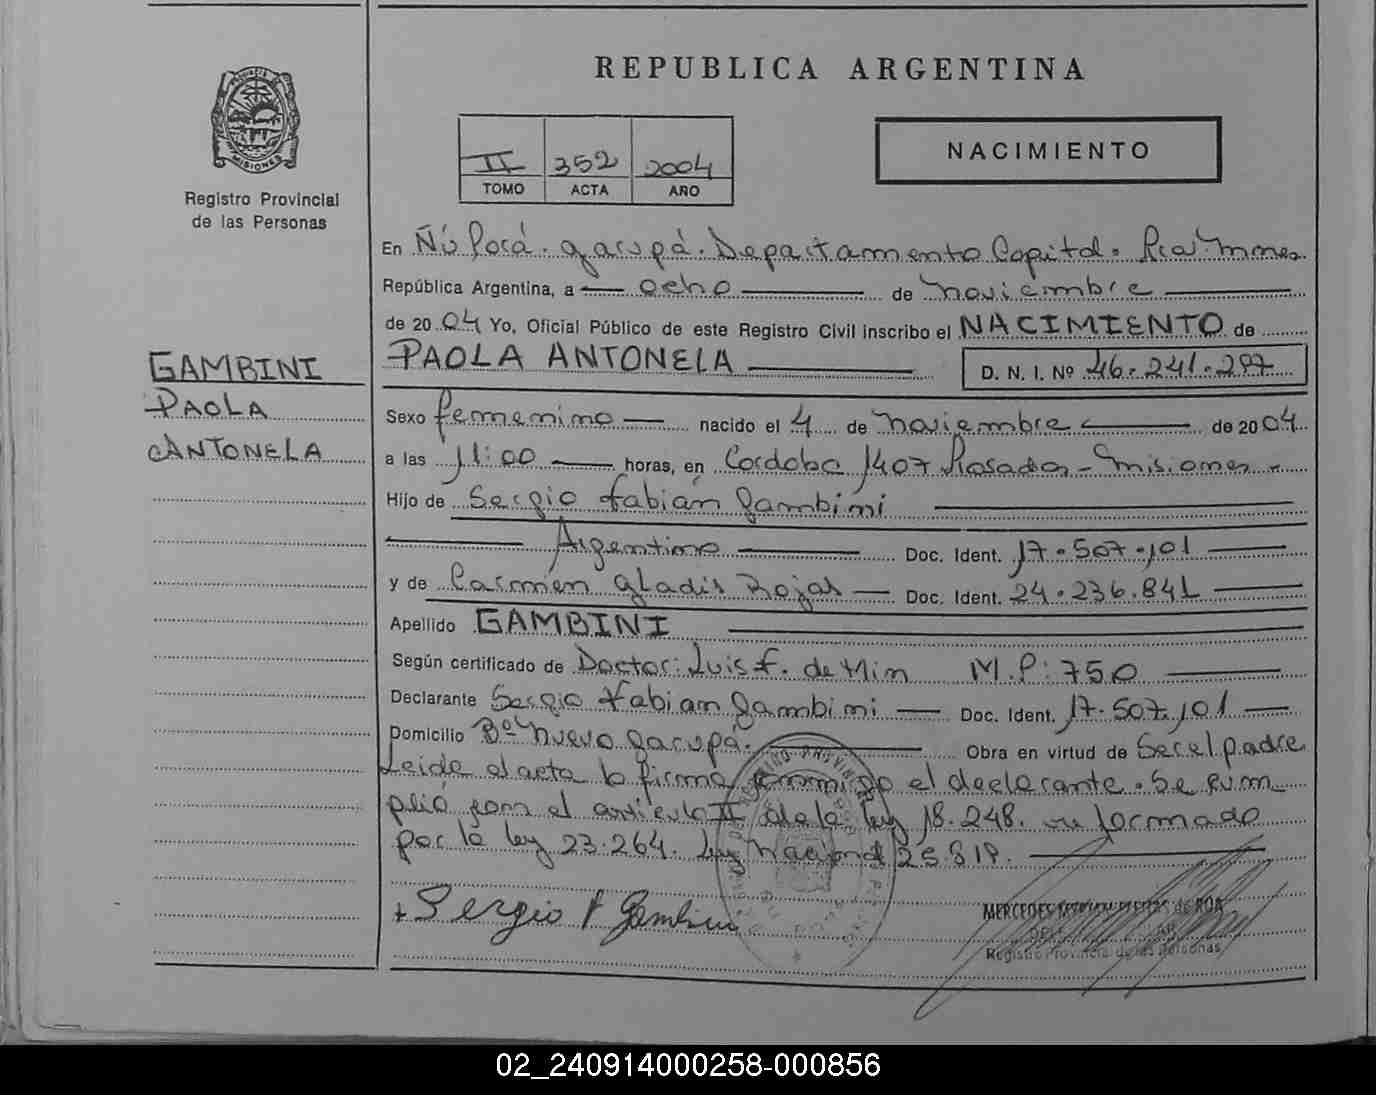 REPUBLICA ARGENTINA
MISIONES
Registro Provincial
de las Personas
II 352 2004
TOMO ACTA AÑO
NACIMIENTO
En Ñú Porá. garupá. Departamento Capital.
República Argentina, a ocho de noviembre
de 2004 Yo, Oficial Público de este Registro Civil inscribo el NACIMIENTO de
PAOLA ANTONELA D. N. I. Nº 46.241.297
GAMBINI
PAOLA
ANTONELA
Sexo femenino nacido el 4 de noviembre de 2004
a las 11:00 horas, en Cordoba 1407 Posadas - Misiones -
Hijo de Sergio Fabián Gambini
Argentino Doc. Ident. 17.507.101
y de Carmen Gladis Rojas Doc. Ident. 24.236.841
Apellido GAMBINI
Según certificado de Doctor: Luis F. de Min M.P: 750
Declarante Sergio Fabian Gambini Doc. Ident. 17.507.101
Domicilio Bº nuevo garupá. Obra en virtud de Ser el padre
Leida el acta la firma conmigo el declarante. Se cum
plió con el artículo II de la ley 18.248.
por la ley 23.264. Ley nacional 25.819.
Sergio F Gambini
MERCEDES DE ROA
Registro Provincial de las Personas
02_240914000258-000856